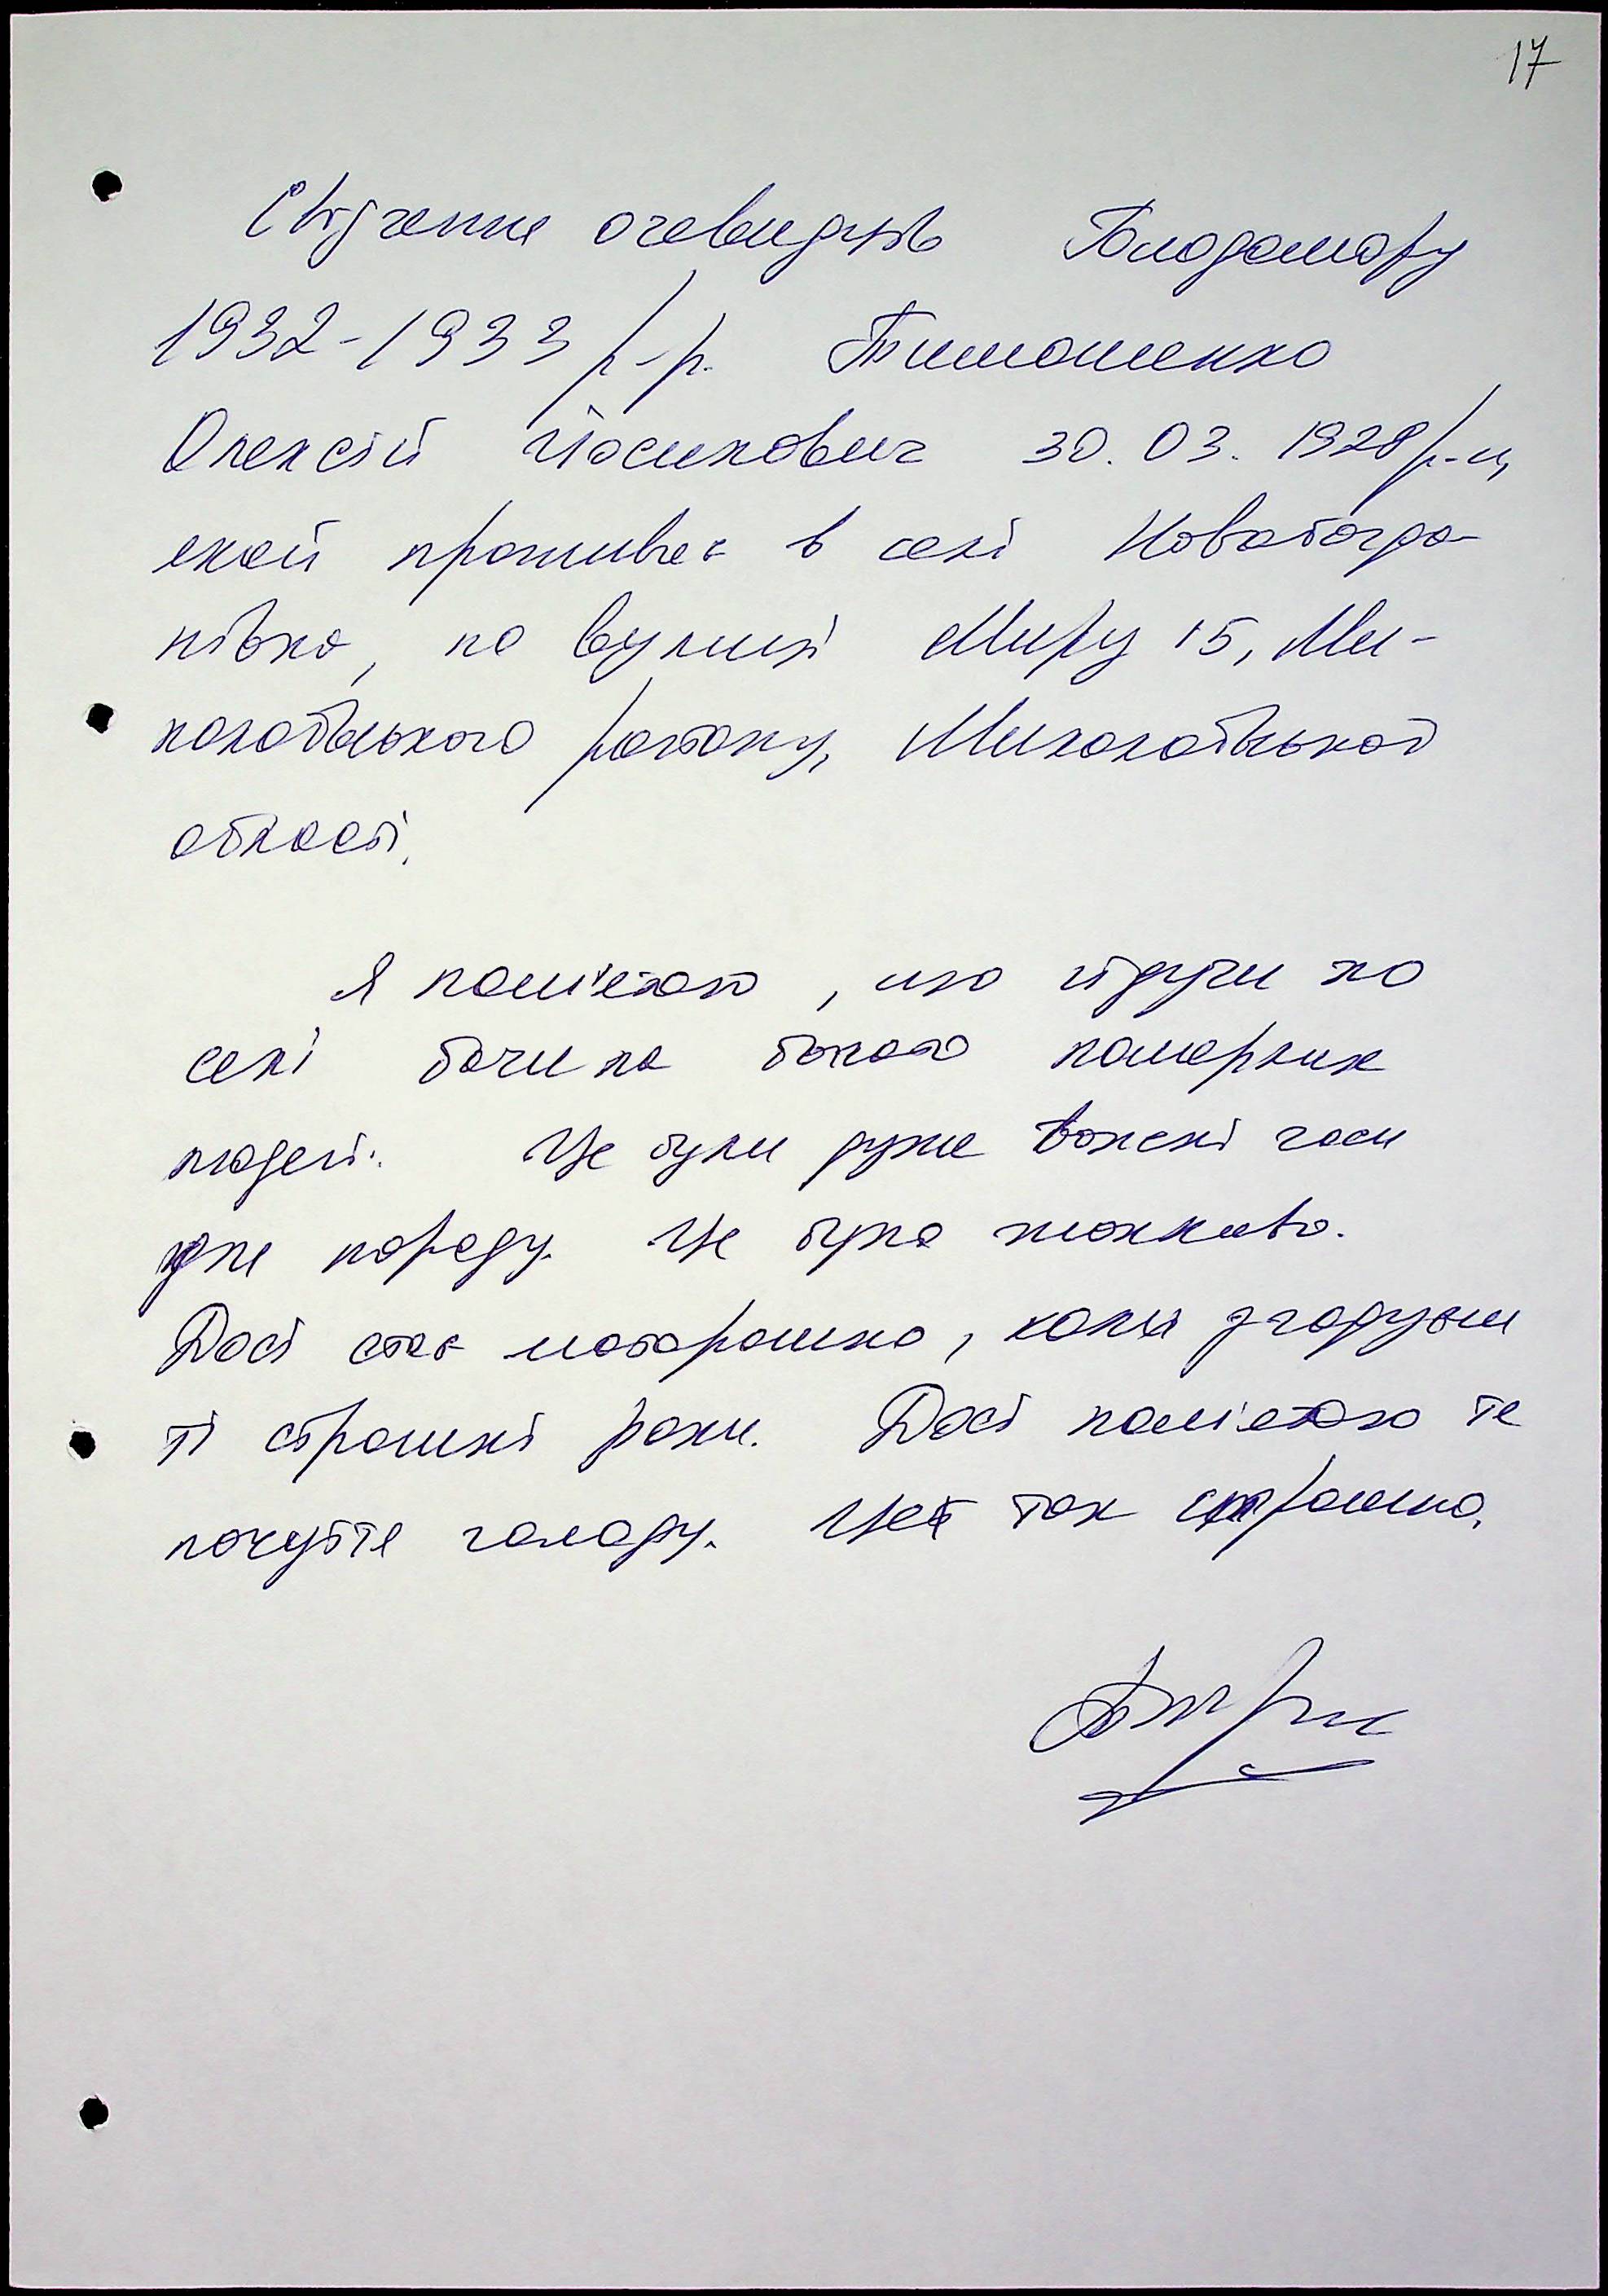 17
Свідчення очевидців Голодомору
1932-1933 р-р. Тимошенко
Олексій Йосипович 30.03.1928 р-н,
який проживає в селі Новобогда-
нівка, по вулиці Миру 15, Ми-
колаївського району, Миколаївської
області.
Я пам'ятаю, що йдучи по
селі бачила багато померлих
людей. Це були дуже важкі часи
для народу. Це було жахливо.
Досі стає моторошно, коли згадуєш
ті страшні роки. Досі пам'ятаю те
почуття голоду. Це так страшно.